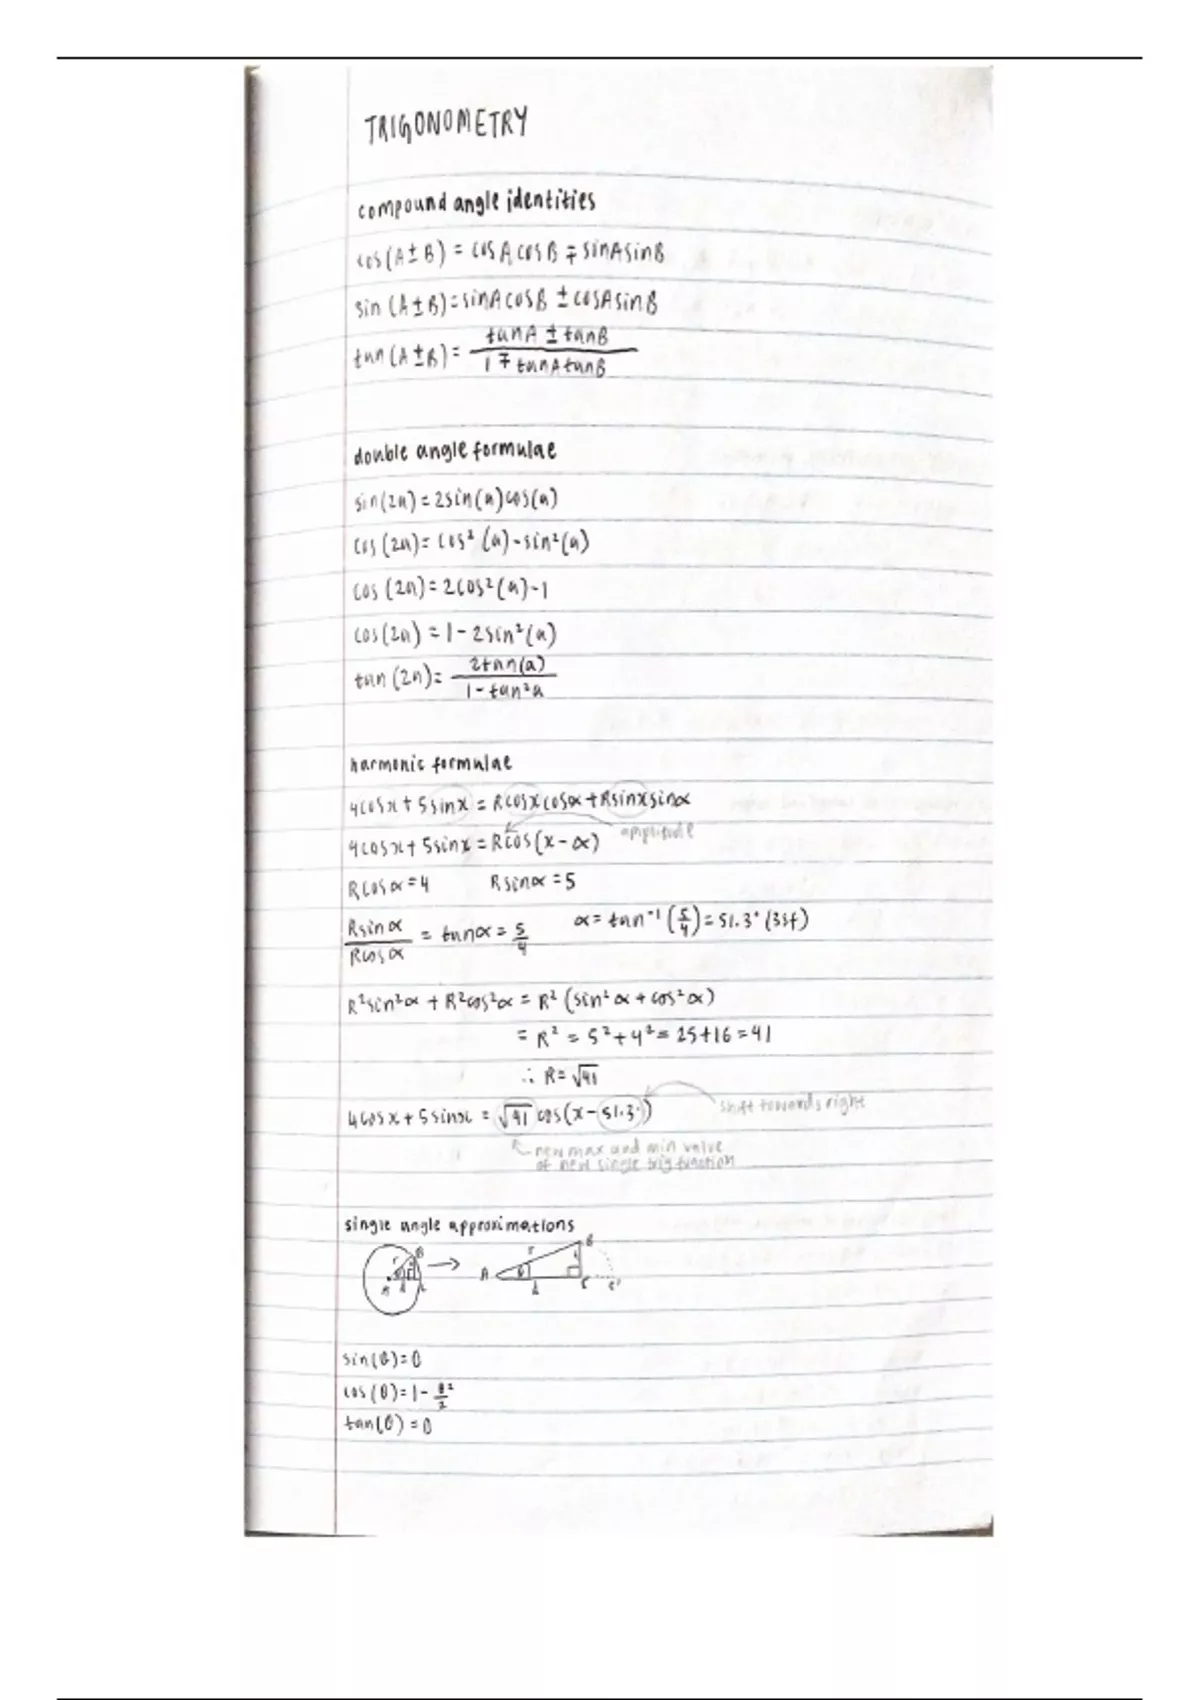 TRIGONOMETRY
compound angle identities
cos(A±B) = cosAcosB ∓ sinAsinB
sin(A±B)=sinAcosB ± cosAsinB
tan(A±B)= tanA ± tanB / 1 ∓ tanAtanB
double angle formulae
sin(2a)=2sin(a)cos(a)
cos(2a)=cos²(a)-sin²(a)
cos(2a)=2cos²(a)-1
cos(2a)=1-2sin²(a)
tan(2a)= 2tan(a) / 1-tan²a
harmonic formulae
4cosx+5sinx = Rcosxcosα+Rsinxsinα
4cosx+5sinx=Rcos(x-α) amplitude
Rcosα=4 Rsinα=5
Rsinα / Rcosα = tanα = 5/4 α=tan⁻¹(5/4)=51.3°(3sf)
R²sin²α + R²cos²α = R²(sin²α+cos²α)
= R² = 5²+4²= 25+16=41
∴ R=√41
4cosx+5sinx = √41 cos(x-51.3°) shift towards right
new max and min value
of new single trig function
single angle approximations
r B A r B
A C C'
sin(θ)=θ
cos(θ)=1-θ²/2
tan(θ)=θ